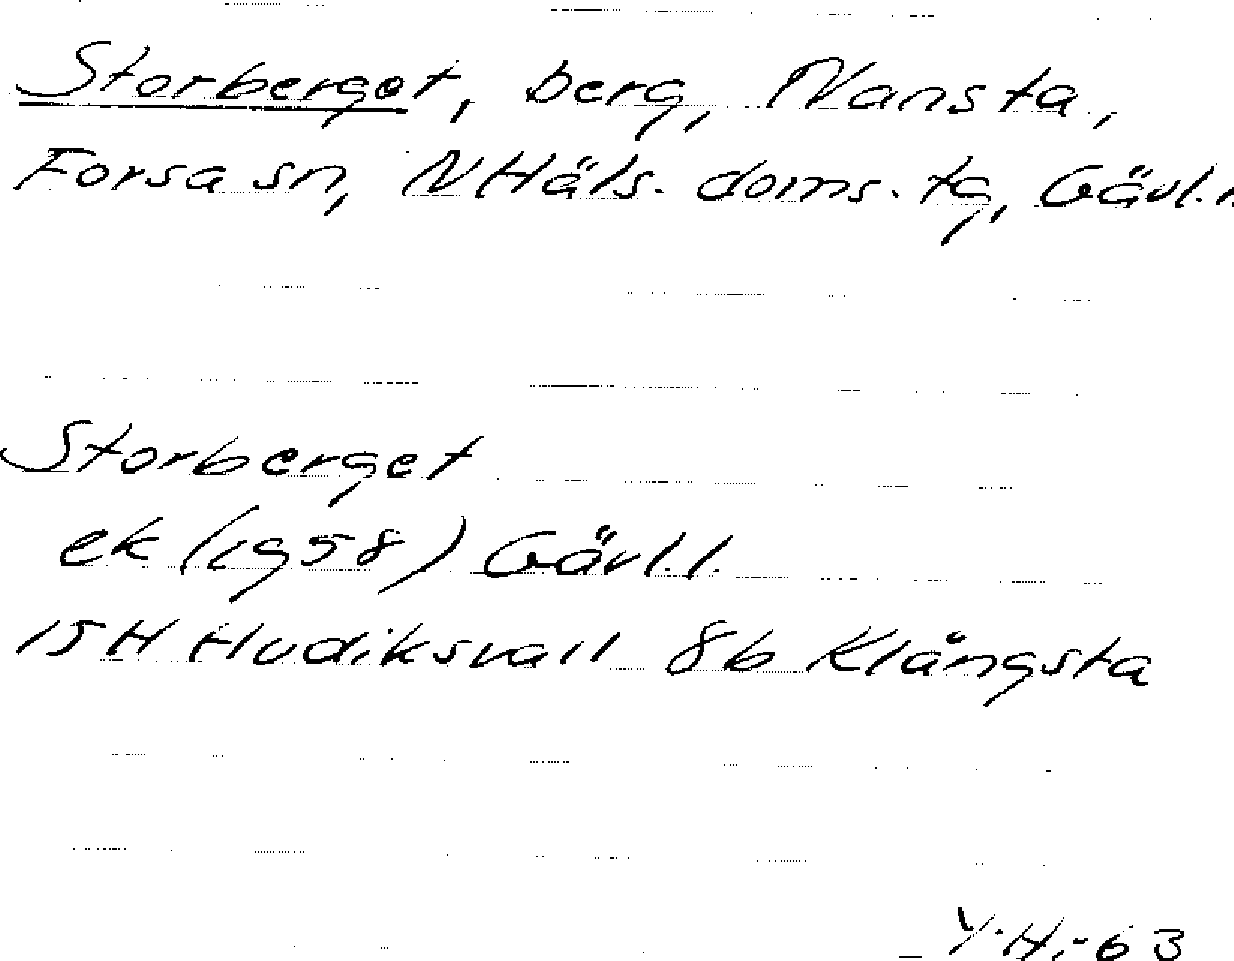 Storberget, berg, Nansta,
Forsa sn, N Häls. doms. tg, Gävl. l.
Storberget
ek (1958) Gävl. l.
15H Hudiksvall 8b Klångsta
Y.H.-63